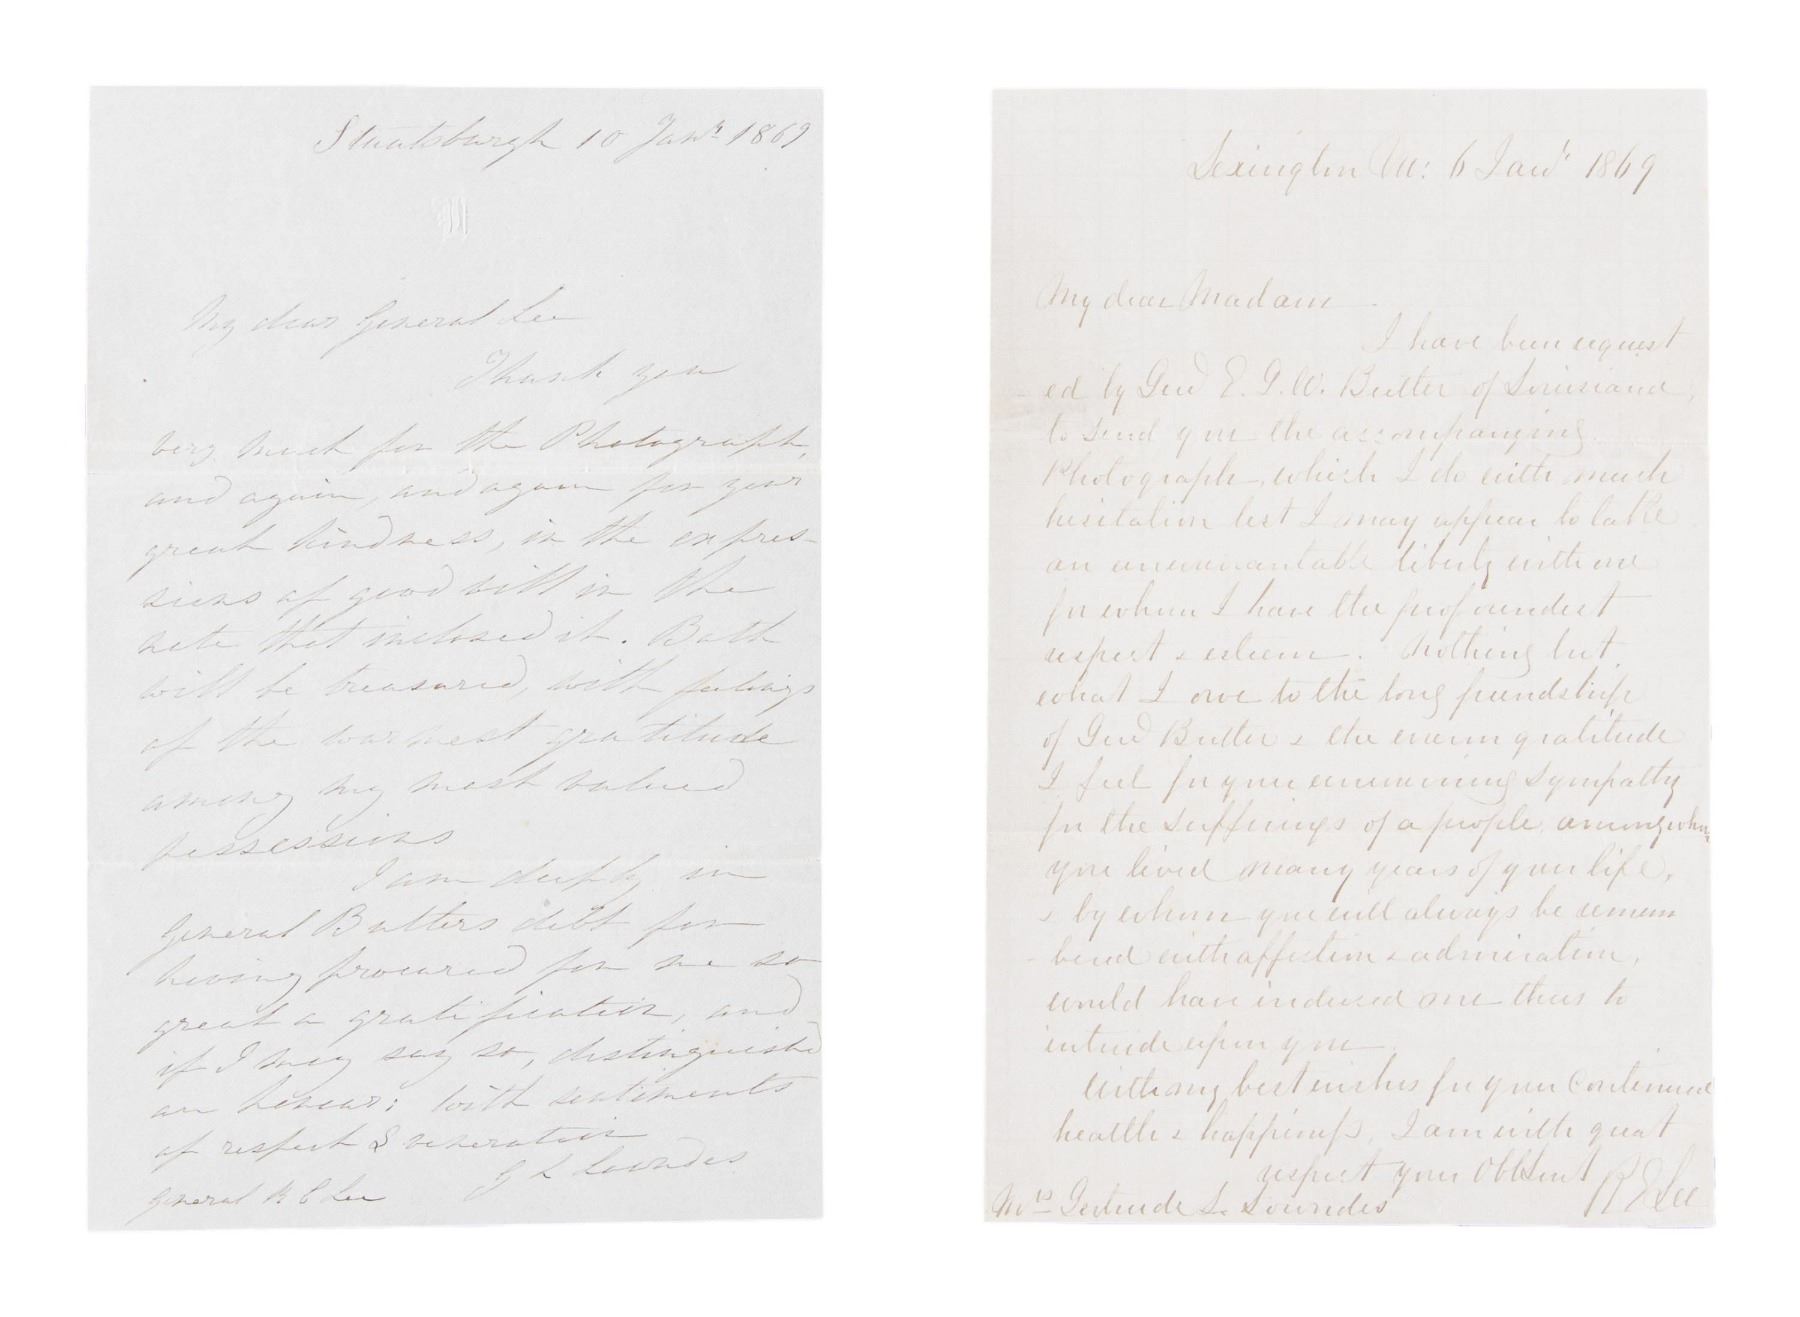 Staatsburgh 10 Janry 1869
My dear General Lee
Thank you
very much for the Photograph,
and again, and again for your
great kindness, in the expres-
sions of good will in the
note that inclosed it. Both
will be treasured, with feelings
of the warmest gratitude
among my most valued
possessions
I am deeply in
General Butlers debt for
having procured for me so
great a gratification, and
if I may say so, distinguished
an honour; With sentiments
of respect & veneration
G L Lowndes
General R E Lee
Lexington Va: 6 Jany 1869
My dear Madam
I have been request
ed by Genl E. G. W. Butler of Louisiana,
to send you the accompanying
Photograph, which I do with much
hesitation lest I may appear to take
an unwarrantable liberty with one
for whom I have the profoundest
respect & esteem. Nothing but
what I owe to the long friendship
of Genl Butler & the warm gratitude
I feel for your unwavering sympathy
for the sufferings of a people, among whom
you lived many years of your life,
& by whom you will always be remem
bered with affection & admiration,
would have induced me thus to
intrude upon you
With my best wishes for your continued
health & happiness, I am with great
respect your Obt Servt R E Lee
Mrs Gertrude L. Lowndes